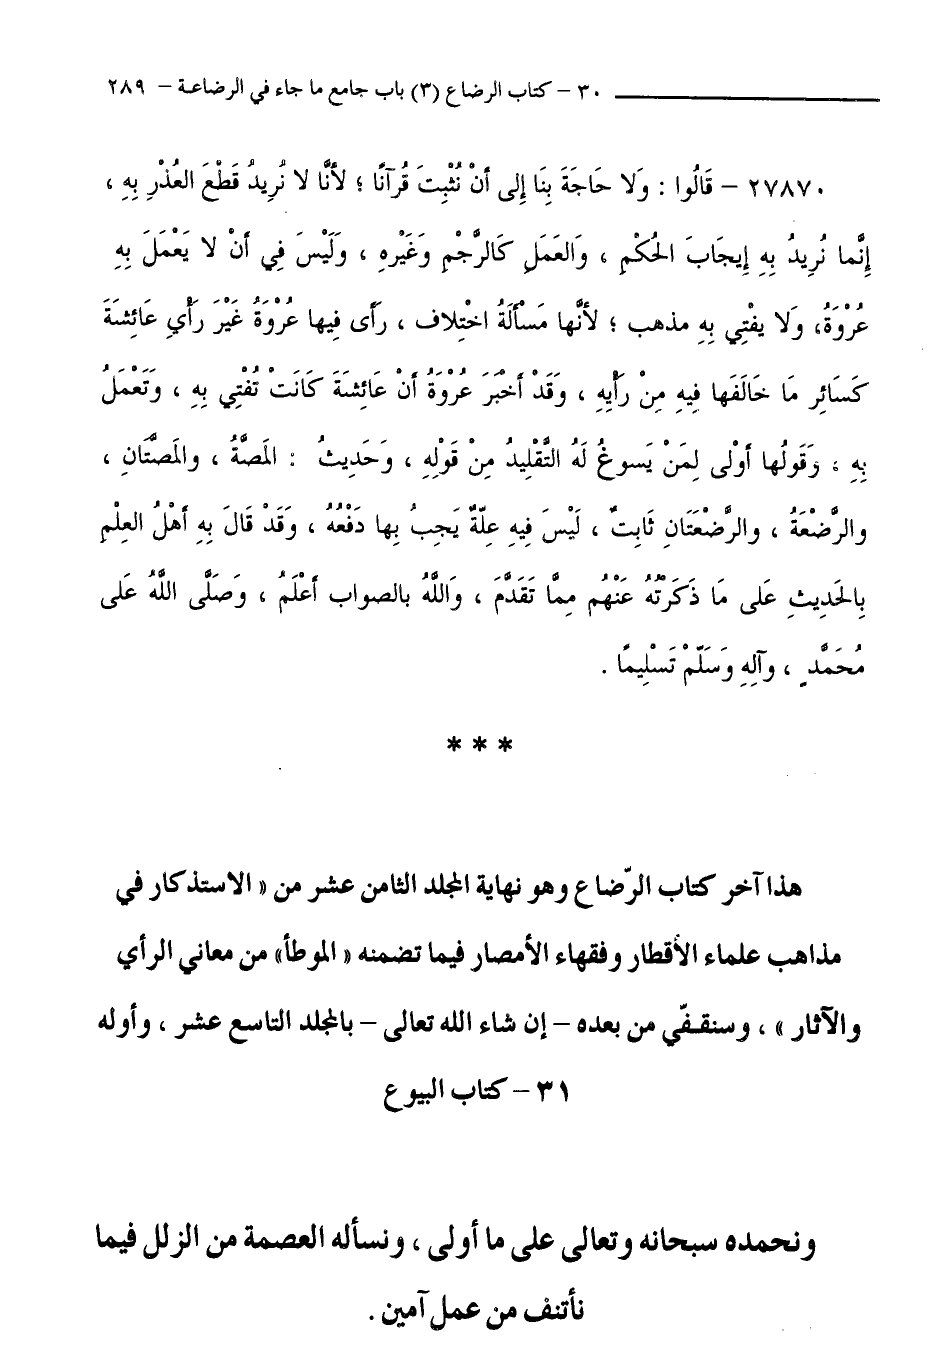 ٣٠ – كتاب الرضاع (٣) باب جامع ما جاء في الرضاعة – ٢٨٩
٢٧٨٧٠ – قَالُوا : وَلا حَاجَةَ بِنَا إلى أنْ نُثْبِتَ قُرآنًا ؛ لأنَّا لا نُرِيدُ قَطْعَ العُذْرِ بِهِ ،
إِنَّما نُرِيدُ بِهِ إيجَابَ الحُكْمِ ، وَالعَمَلِ كَالرَّجْمِ وَغَيْرِهِ ، وَلَيْسَ فِي أنْ لا يَعْمَلَ بِهِ
عُرْوَةُ، وَلا يفْتِي بِهِ مذهب ؛ لأنَّها مَسْألَةُ اخْتِلاف ، رَأى فِيها عُرْوَةُ غَيْرَ رَأْيِ عَائِشَةَ
كَسَائِرِ مَا خَالَفَها فِيهِ مِنْ رَأيِهِ ، وَقَدْ أخْبَرَ عُرْوَةُ أنْ عَائِشَةَ كَانَتْ تُفْتِي بِهِ ، وَتَعْمَلُ
بِهِ ، وَقَولُها أوْلى لِمَنْ يَسوغُ لَهُ التَّقْلِيدُ مِنْ قَوْلِهِ ، وَحَدِيثُ : المَصَّةُ ، والمَصَّتَانِ ،
والرَّضْعَةُ ، والرَّضْعَتَانِ ثَابِتٌ ، لَيْسَ فِيهِ عِلّةٌ يَجِبُ بِها دَفْعُهُ ، وَقَدْ قَالَ بِهِ أهْلُ العِلْمِ
بِالحَدِيثِ عَلى مَا ذَكَرْتُهُ عَنْهُم مِمَّا تَقَدَّمَ ، وَاللَّهُ بالصواب أعْلَمُ ، وَصَلَّى اللَّهُ عَلى
مُحَمَّدٍ ، وآلِهِ وَسَلّمْ تَسْلِيمًا .
* * *
هذا آخر كتاب الرّضاع وهو نهاية المجلد الثامن عشر من « الاستذكار في
مذاهب علماء الأقطار وفقهاء الأمصار فيما تضمنه « الموطأ» من معاني الرأي
والآثار » ، وسنقـفّي من بعده – إن شاء الله تعالى – بالمجلد التاسع عشر ، وأوله
٣١ – كتاب البيوع
ونحمده سبحانه وتعالى على ما أولى ، ونسأله العصمة من الزلل فيما
نأتنف من عمل آمين .